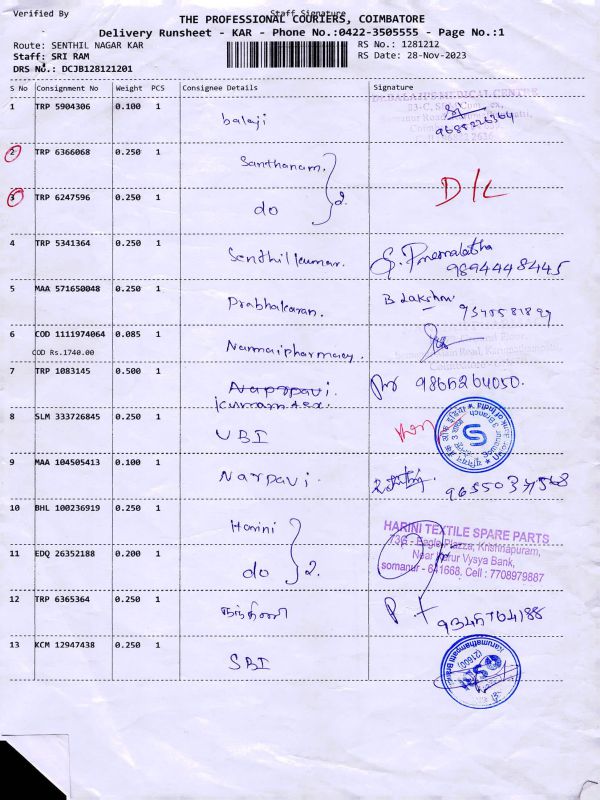 Verified By Staff Signature
THE PROFESSIONAL COURIERS, COIMBATORE
Delivery Runsheet - KAR - Phone No.:0422-3505555 - Page No.:1
Route: SENTHIL NAGAR KAR RS No.: 1281212
Staff: SRI RAM RS Date: 28-Nov-2023
DRS No.: DCJB128121201
S No Consignment No Weight PCS Consignee Details Signature
1 TRP 5904306 0.100 1 balaji
2 TRP 6366068 0.250 1 Santhanam.
3 TRP 6247596 0.250 1 do 2. D/L
4 TRP 5341364 0.250 1 Senthilkumar. S. Premalatha
9894448445
5 MAA 571650048 0.250 1 Prabhakaran. B Lakshmi
6 COD 1111974064 0.085 1 Narmaipharmacy
COD Rs.1740.00
7 TRP 1083145 0.500 1 Narpavi
8 SLM 333726845 0.250 1 UBI
9 MAA 104505413 0.100 1 Narpavi.
10 BHL 100236919 0.250 1 Harini
HARINI TEXTILE SPARE PARTS
73G - Eagle Plazza, Krishnapuram,
Near Karur Vysya Bank,
somanur - 641668, Cell : 7708979887
11 EDQ 26352188 0.200 1 do 2.
12 TRP 6365364 0.250 1 நந்தினி 9345764188
13 KCM 12947438 0.250 1 SBI